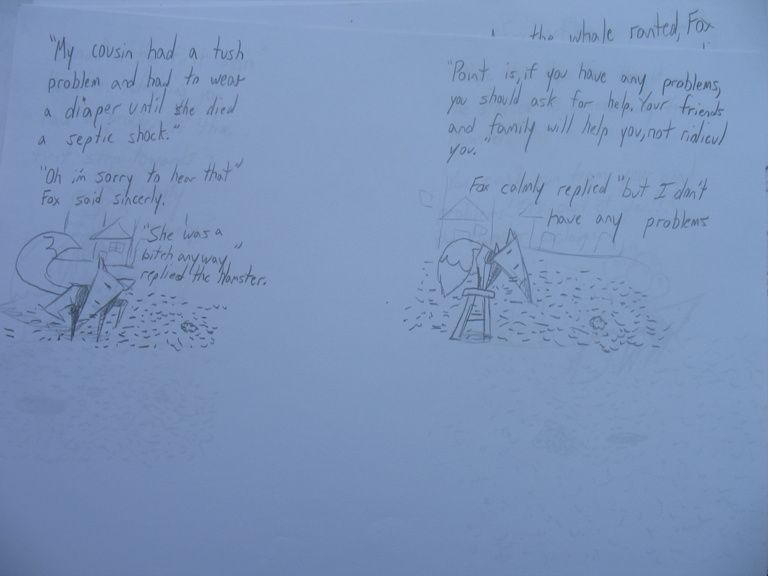 "My cousin had a tush
problem and had to wear
a diaper until she died
a septic shock."
"Oh im sorry to hear that"
Fox said sincerly.
"She was a
bitch anyway,"
replied the Hamster.
the whale ranted, Fox
"Point is, if you have any problems,
you should ask for help. Your friends
and family will help you, not ridicul
you."
Fox calmly replied "but I don't
have any problems